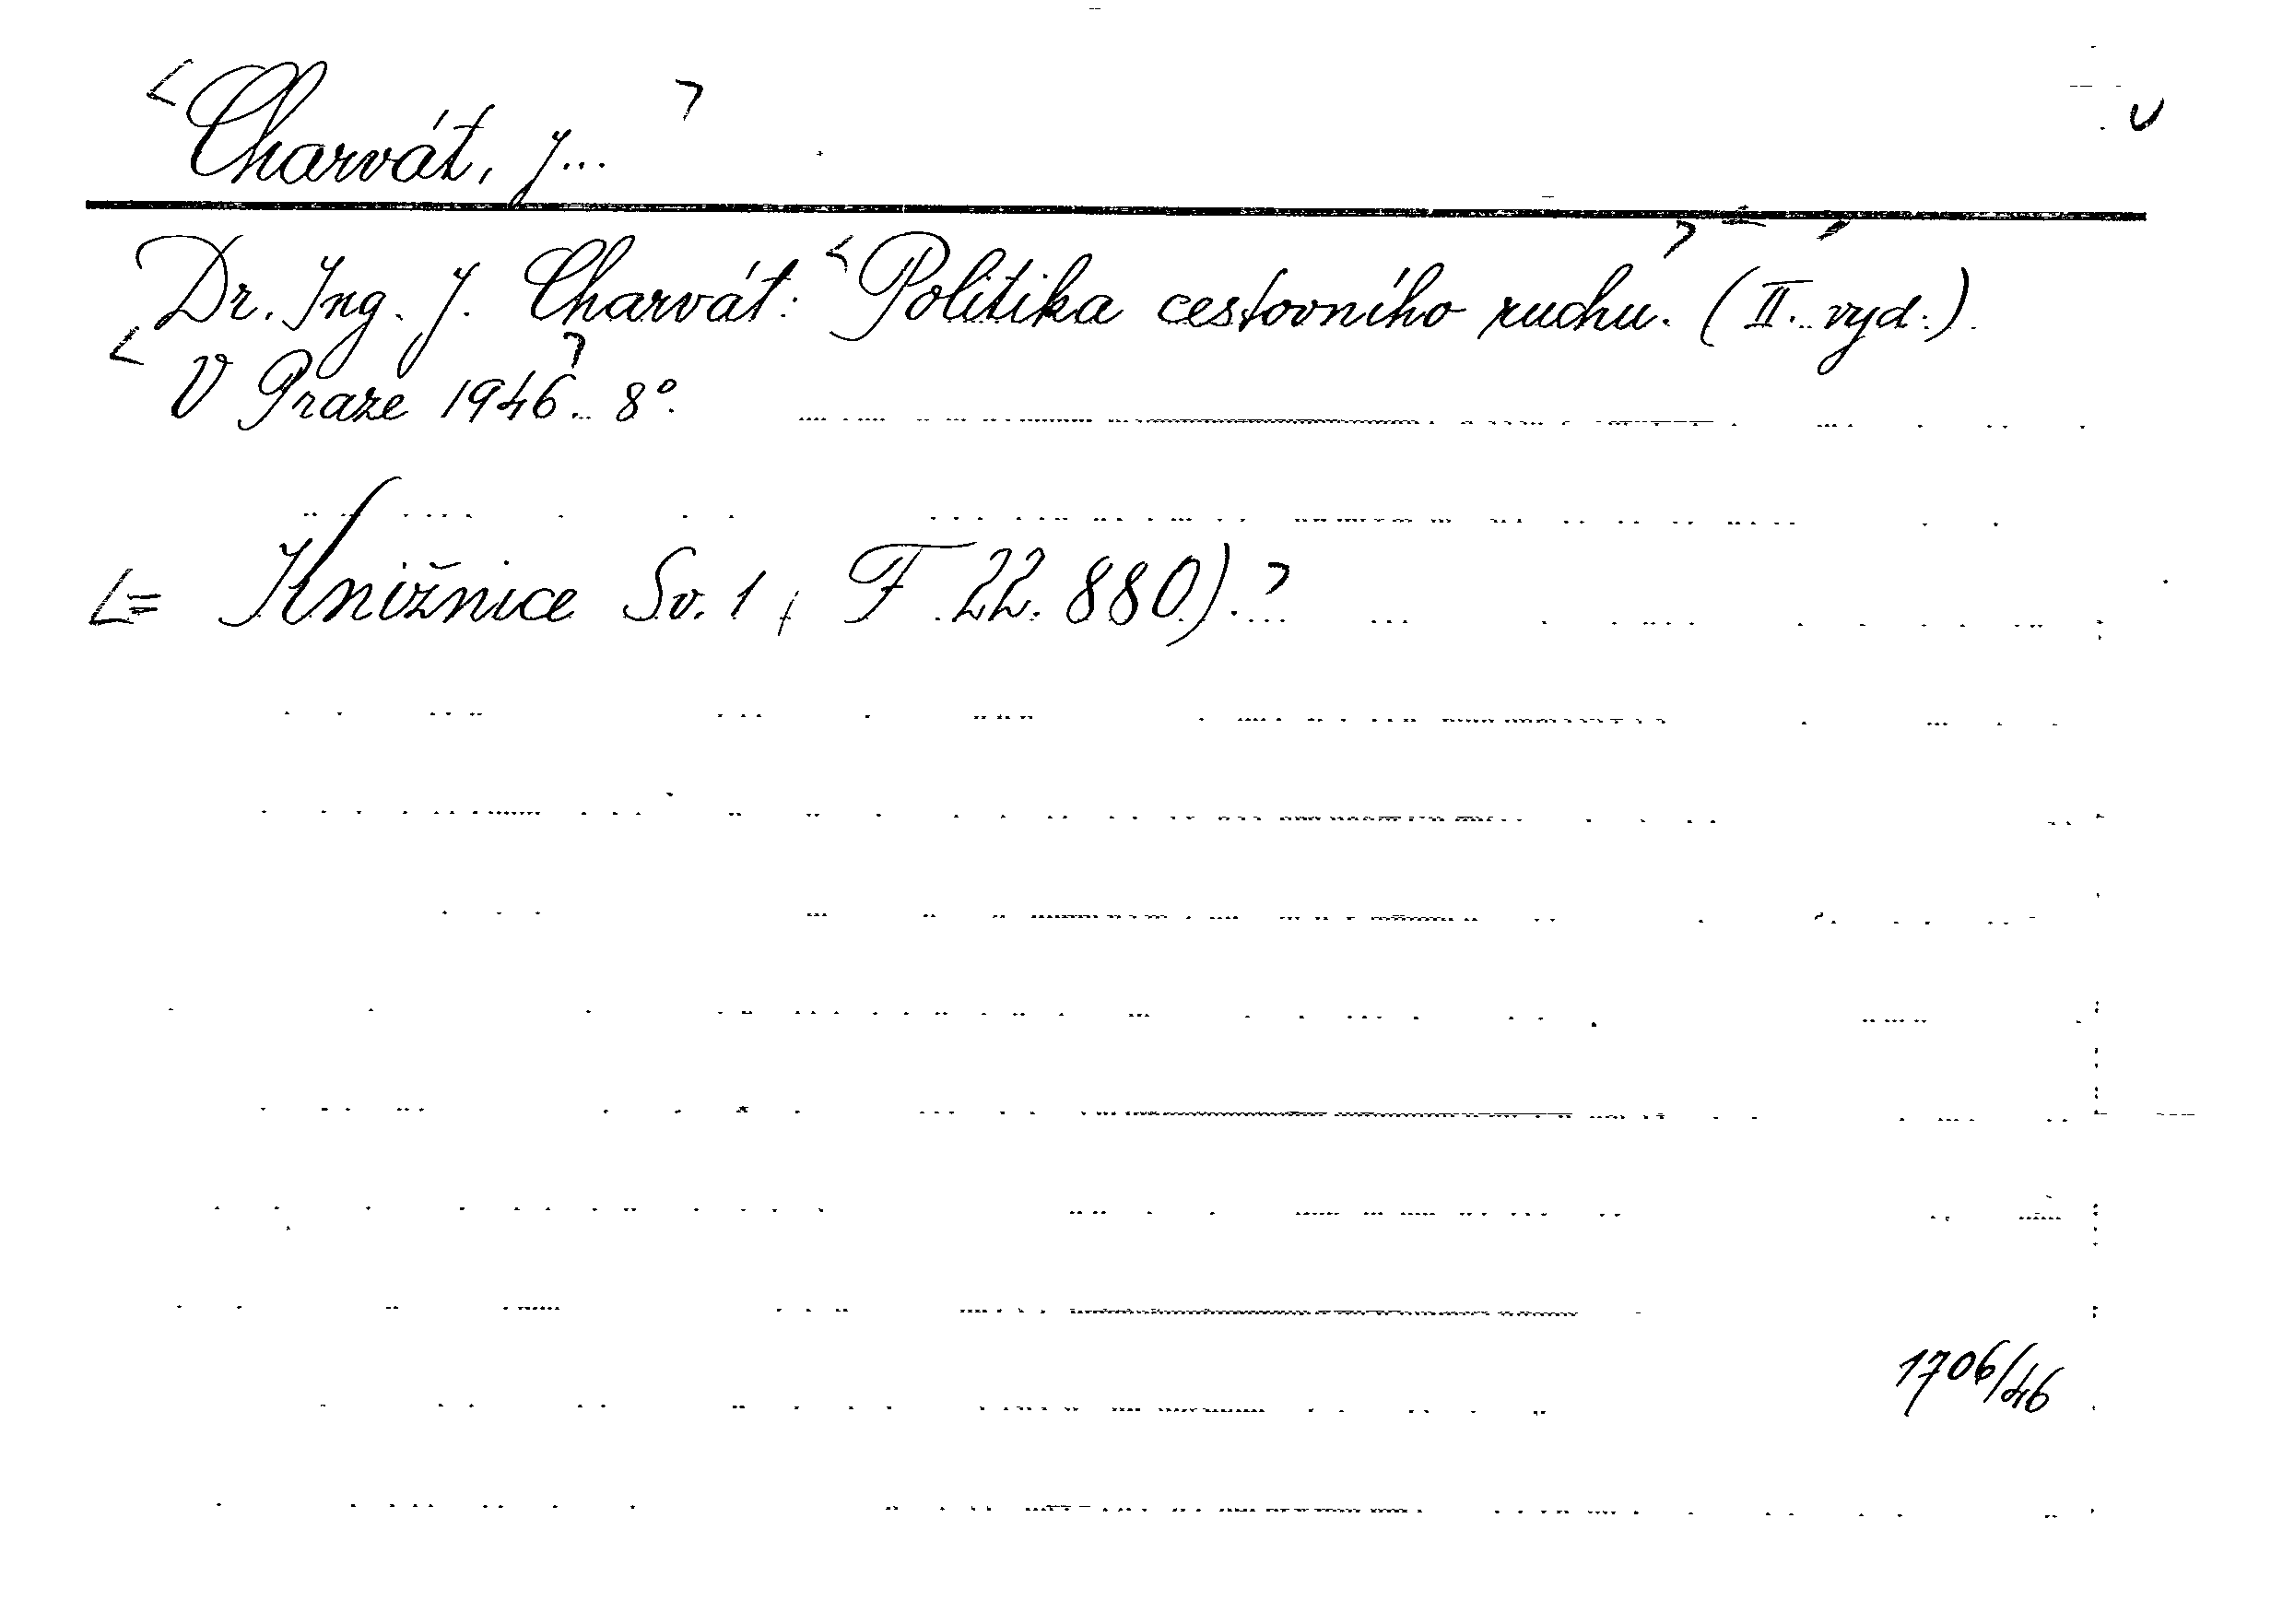 Charvát, J...
Dr. Ing. J. Charvát: Politika cestovního ruchu. (II. vyd.)
V Praze 1946. 8°.
= Knižnice Sv. 1, F 22.880).
1706/46